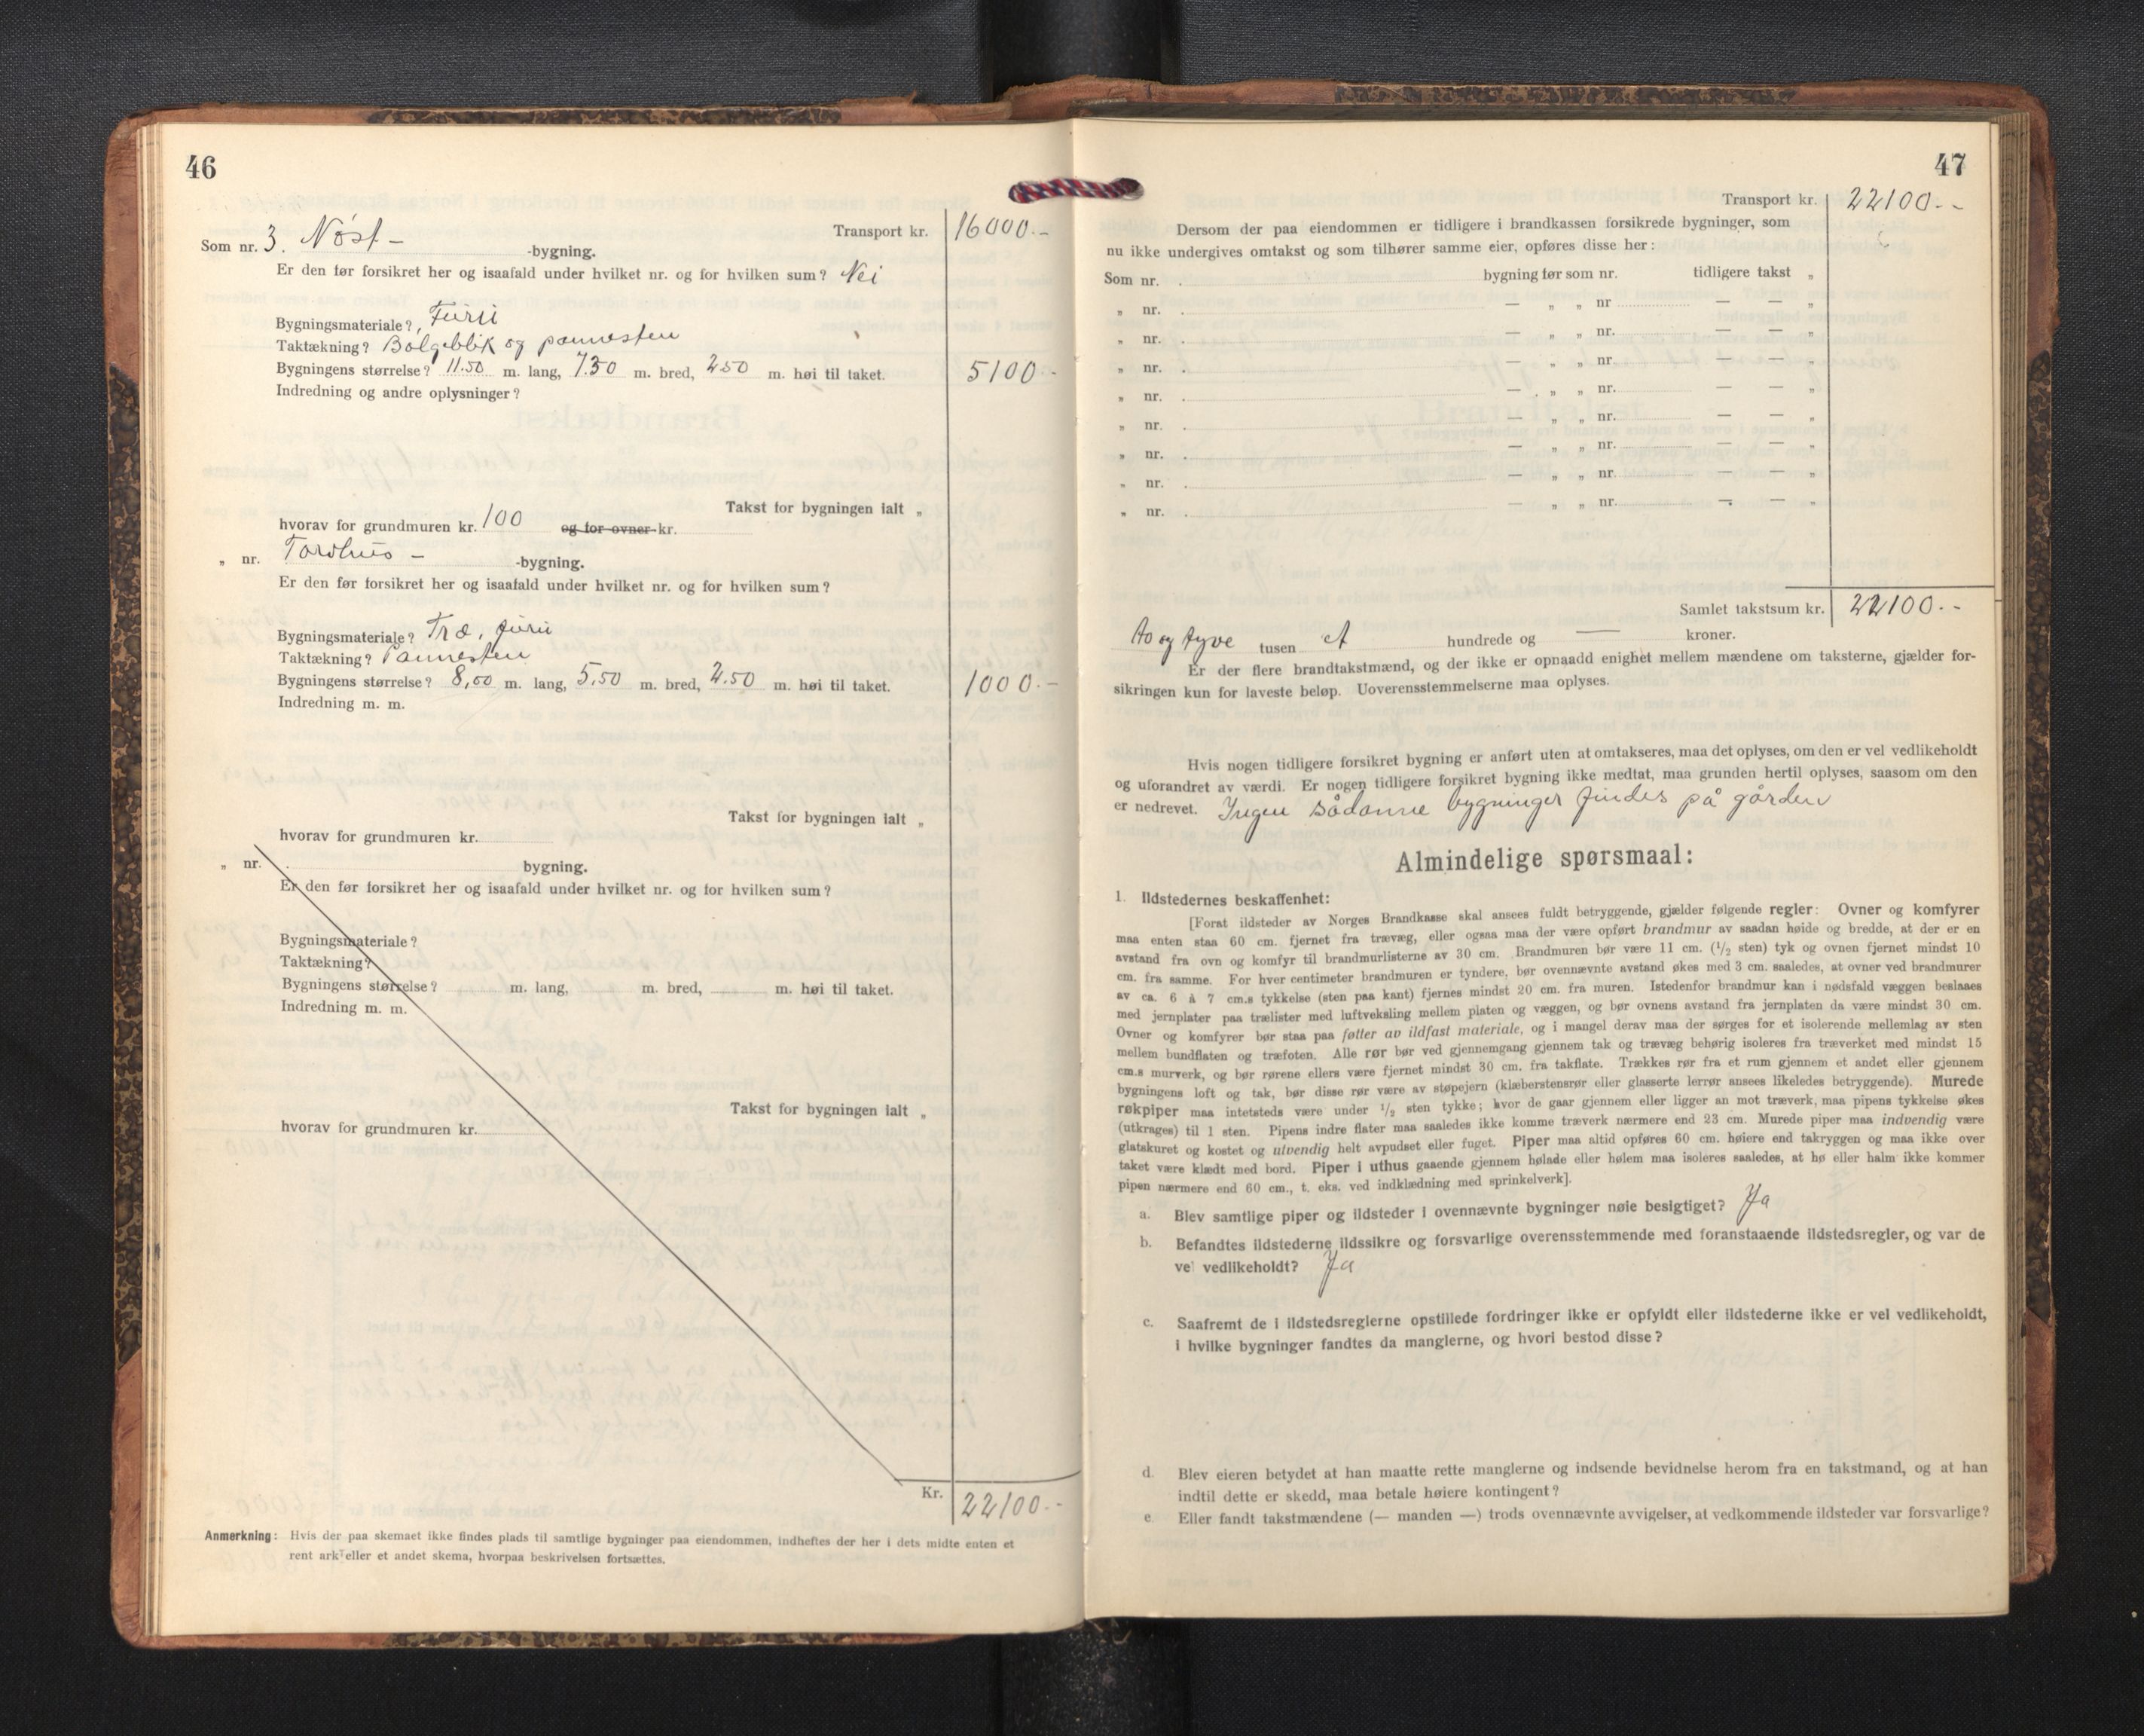 46
Transport kr. 16000.-
Som nr. 3. Nöst - -bygning.
Er den før forsikret her og isaafald under hvilket nr. og for hvilken sum? Nei
Bygningsmateriale? Furu
Taktækning? Bølgeblik og pannesten
Bygningens størrelse? 11.50 m. lang, 7.30 m. bred, 2.50 m. høi til taket. 5100.-
Indredning og andre oplysninger?
Takst for bygningen ialt „
hvorav for grundmuren kr. 100 og for ovner kr.
„ nr. -bygning.
Er den før forsikret her og isaafald under hvilket nr. og for hvilken sum?
Bygningsmateriale? Træ, furu
Taktækning? Pannesten
Bygningens størrelse? 8,00 m. lang, 5,50 m. bred, 2.50 m. høi til taket. 1000.-
Indredning m. m.
Takst for bygningen ialt „
hvorav for grundmuren kr.
„ nr. bygning.
Er den før forsikret her og isaafald under hvilket nr. og for hvilken sum?
Bygningsmateriale?
Taktækning?
Bygningens størrelse? m. lang, m. bred, m. høi til taket.
Indredning m. m.
Takst for bygningen ialt „
hvorav for grundmuren kr.
Kr. 22100.-
Anmerkning: Hvis der paa skemaet ikke findes plads til samtlige bygninger paa eiendommen, indheftes der her i dets midte enten et
rent ark eller et andet skema, hvorpaa beskrivelsen fortsættes.
47
Transport kr. 22100.-
Dersom der paa eiendommen er tidligere i brandkassen forsikrede bygninger, som
nu ikke undergives omtakst og som tilhører samme eier, opføres disse her:
Som nr. bygning før som nr. tidligere takst „
„ nr. — „ „ nr. — — „
„ nr. — „ „ nr. — — „
„ nr. — „ „ nr. — — „
„ nr. — „ „ nr. — — „
„ nr. — „ „ nr. — — „
„ nr. — „ „ nr. — — „
„ nr. — „ „ nr. — — „
„ nr. — „ „ nr. — — „
Samlet takstsum kr. 22100.-
to og tyve tusen et hundrede og — kroner.
Er der flere brandtakstmænd, og der ikke er opnaadd enighet mellem mændene om taksterne, gjælder for-
sikringen kun for laveste beløp. Uoverensstemmelserne maa oplyses.
Hvis nogen tidligere forsikret bygning er anført uten at omtakseres, maa det oplyses, om den er vel vedlikeholdt
og uforandret av værdi. Er nogen tidligere forsikret bygning ikke medtat, maa grunden hertil oplyses, saasom om den
er nedrevet. Ingen sådanne bygninger findes på gården
Almindelige spørsmaal:
1. Ildstedernes beskaffenhet:
[Forat ildsteder av Norges Brandkasse skal ansees fuldt betryggende, gjælder følgende regler: Ovner og komfyrer
maa enten staa 60 cm. fjernet fra trævæg, eller ogsaa maa der være opført brandmur av saadan høide og bredde, at der er en
avstand fra ovn og komfyr til brandmurlisterne av 30 cm. Brandmuren bør være 11 cm. (1/2 sten) tyk og ovnen fjernet mindst 10
cm. fra samme. For hver centimeter brandmuren er tyndere, bør ovennævnte avstand økes med 3 cm. saaledes, at ovner ved brandmurer
av ca. 6 à 7 cm.s tykkelse (sten paa kant) fjernes mindst 20 cm. fra muren. Istedenfor brandmur kan i nødsfald væggen beslaaes
med jernplater paa trælister med luftveksling mellem platen og væggen, og bør ovnens avstand fra jernplaten da være mindst 30 cm.
Ovner og komfyrer bør staa paa føtter av ildfast materiale, og i mangel derav maa der sørges for et isolerende mellemlag av sten
mellem bundflaten og træfoten. Alle rør bør ved gjennemgang gjennem tak og trævæg behørig isoleres fra træverket med mindst 15
cm.s murverk, og bør rørene ellers være fjernet mindst 30 cm. fra takflate. Trækkes rør fra et rum gjennem et andet eller gjennem
bygningens loft og tak, bør disse rør være av støpejern (klæberstensrør eller glasserte lerrør ansees likeledes betryggende). Murede
røkpiper maa intetsteds være under 1/2 sten tykke; hvor de gaar gjennem eller ligger an mot træverk, maa pipens tykkelse økes
(utkrages) til 1 sten. Pipens indre flater maa saaledes ikke komme træverk nærmere end 23 cm. Murede piper maa indvendig være
glatskuret og kostet og utvendig helt avpudset eller fuget. Piper maa altid opføres 60 cm. høiere end takryggen og maa ikke over
taket være klædt med bord. Piper i uthus gaaende gjennem hølade eller hølem maa isoleres saaledes, at hø eller halm ikke kommer
pipen nærmere end 60 cm., t. eks. ved indklædning med sprinkelverk].
a. Blev samtlige piper og ildsteder i ovennævnte bygninger nøie besigtiget? Ja
b. Befandtes ildstederne ildssikre og forsvarlige overensstemmende med foranstaaende ildstedsregler, og var de
vel vedlikeholdt? Ja
c. Saafremt de i ildstedsreglerne opstillede fordringer ikke er opfyldt eller ildstederne ikke er vel vedlikeholdt,
i hvilke bygninger fandtes da manglerne, og hvori bestod disse?
d. Blev eieren betydet at han maatte rette manglerne og indsende bevidnelse herom fra en takstmand, og at han
indtil dette er skedd, maa betale høiere kontingent?
e. Eller fandt takstmændene (— manden —) trods ovennævnte avvigelser, at vedkommende ildsteder var forsvarlige?